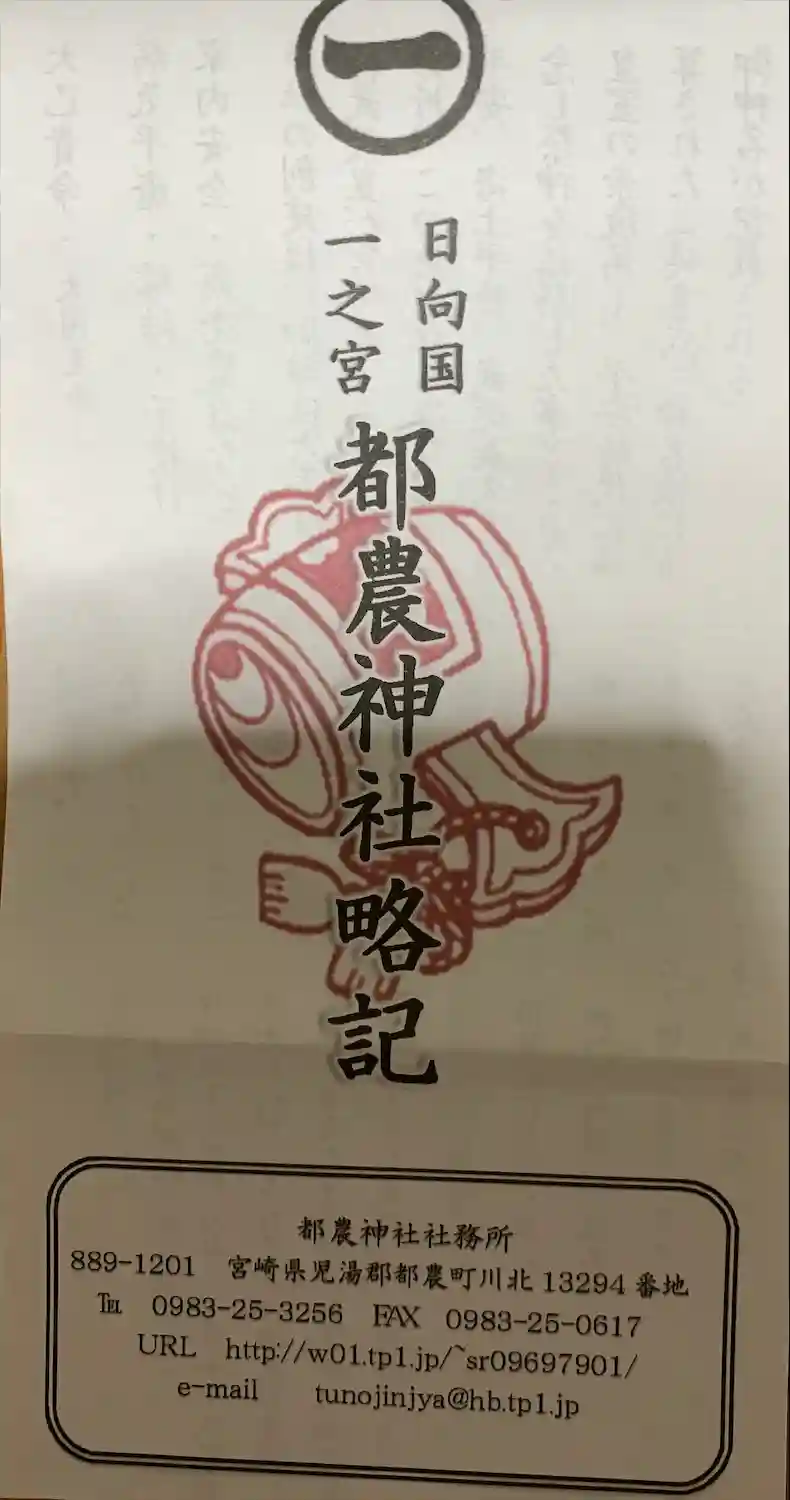 一
日向国
一之宮
都農神社略記
都農神社社務所
889-1201 宮崎県児湯郡都農町川北13294番地
℡ 0983-25-3256 FAX 0983-25-0617
URL http://w01.tp1.jp/~sr09697901/
e-mail tunojinjya@hb.tp1.jp